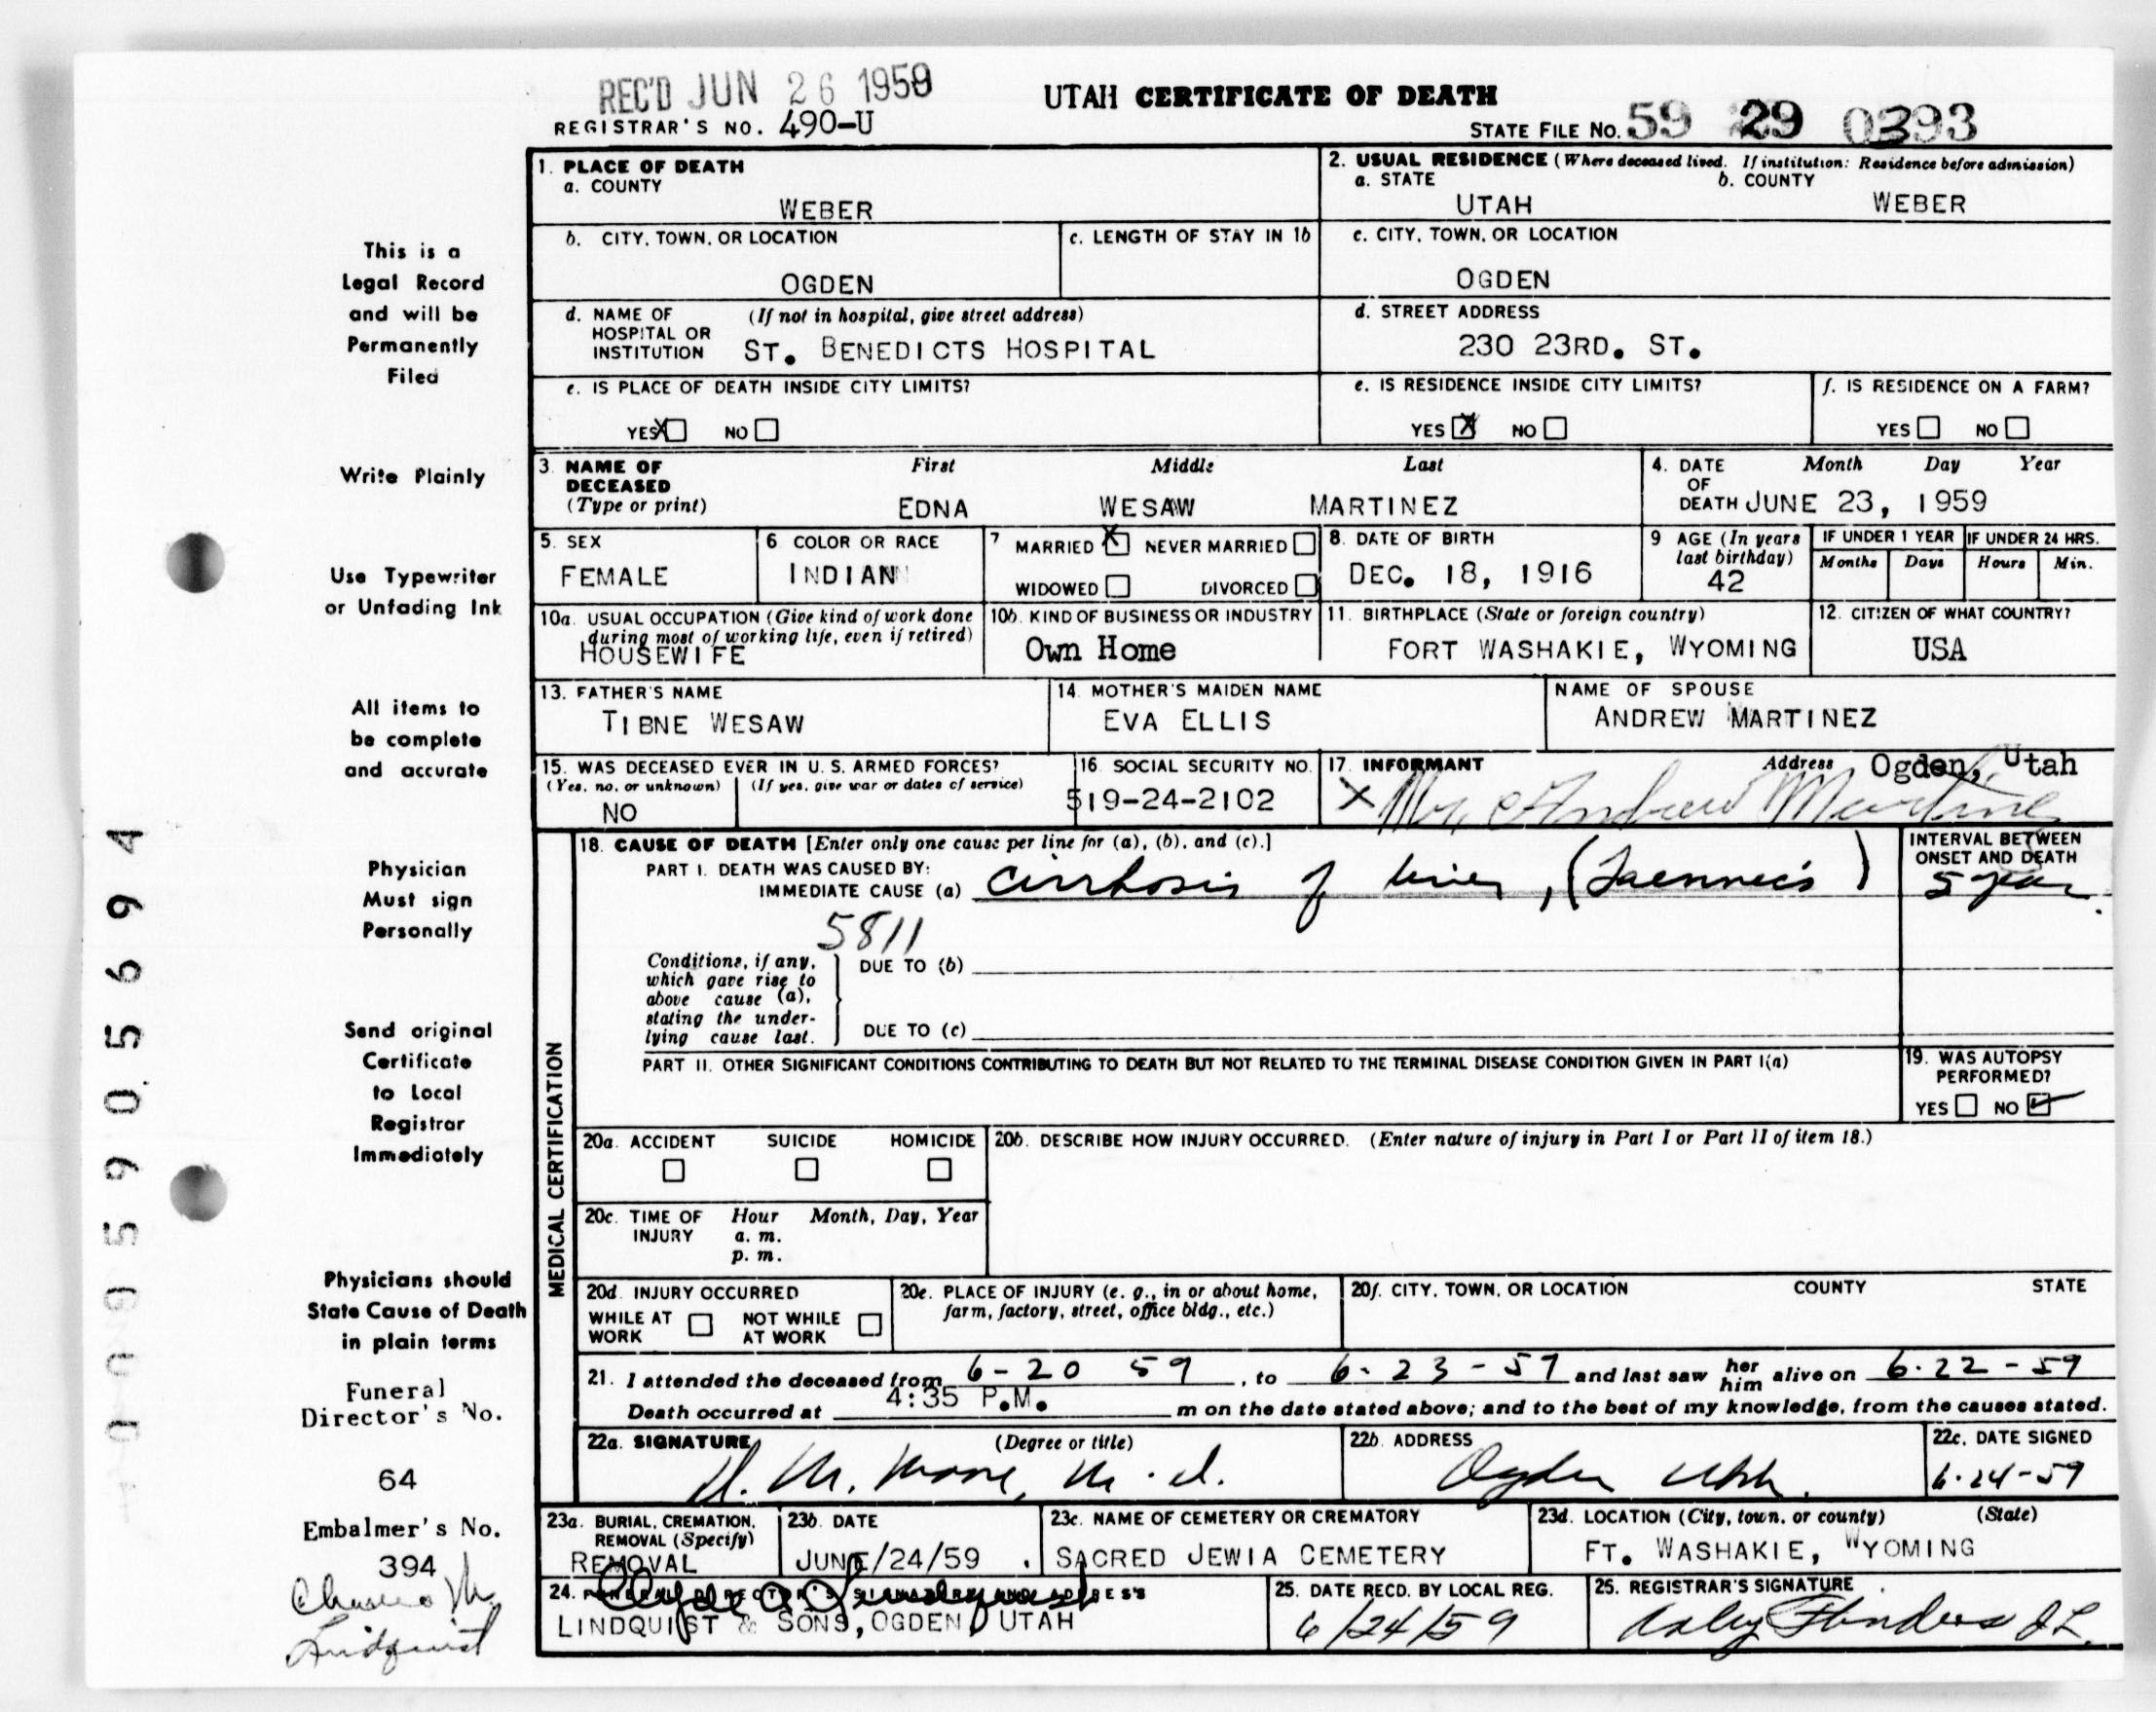 REC'D JUN 26 1959
UTAH CERTIFICATE OF DEATH
REGISTRAR'S NO. 490-U
STATE FILE NO. 59 29 0393
1. PLACE OF DEATH
a. COUNTY
WEBER
2. USUAL RESIDENCE (Where deceased lived. If institution: Residence before admission)
a. STATE b. COUNTY
UTAH WEBER
b. CITY, TOWN, OR LOCATION
OGDEN
c. LENGTH OF STAY IN 1b
c. CITY, TOWN, OR LOCATION
OGDEN
d. NAME OF HOSPITAL OR INSTITUTION (If not in hospital, give street address)
ST. BENEDICTS HOSPITAL
d. STREET ADDRESS
230 23RD. ST.
e. IS PLACE OF DEATH INSIDE CITY LIMITS?
YES X NO
e. IS RESIDENCE INSIDE CITY LIMITS?
YES X NO
f. IS RESIDENCE ON A FARM?
YES NO
3. NAME OF DECEASED (Type or print) First Middle Last
EDNA WESAW MARTINEZ
4. DATE OF DEATH Month Day Year
JUNE 23, 1959
5. SEX
FEMALE
6 COLOR OR RACE
INDIAN
7 MARRIED X NEVER MARRIED
WIDOWED DIVORCED
8. DATE OF BIRTH
DEC. 18, 1916
9 AGE (In years last birthday)
42
IF UNDER 1 YEAR IF UNDER 24 HRS.
Months Days Hours Min.
10a. USUAL OCCUPATION (Give kind of work done during most of working life, even if retired)
HOUSEWIFE
10b. KIND OF BUSINESS OR INDUSTRY
Own Home
11. BIRTHPLACE (State or foreign country)
FORT WASHAKIE, WYOMING
12. CITIZEN OF WHAT COUNTRY?
USA
13. FATHER'S NAME
TIBNE WESAW
14. MOTHER'S MAIDEN NAME
EVA ELLIS
NAME OF SPOUSE
ANDREW MARTINEZ
15. WAS DECEASED EVER IN U. S. ARMED FORCES?
(Yes, no, or unknown) (If yes, give war or dates of service)
NO
16. SOCIAL SECURITY NO.
519-24-2102
17. INFORMANT Address Ogden, Utah
X Mr. Andrew Martinez
MEDICAL CERTIFICATION
18. CAUSE OF DEATH [Enter only one cause per line for (a), (b), and (c).]
PART I. DEATH WAS CAUSED BY:
IMMEDIATE CAUSE (a) Cirrhosis of liver, (Laennec's)
INTERVAL BETWEEN ONSET AND DEATH
5 year
5811
Conditions, if any, which gave rise to above cause (a), stating the underlying cause last.
DUE TO (b)
DUE TO (c)
PART II. OTHER SIGNIFICANT CONDITIONS CONTRIBUTING TO DEATH BUT NOT RELATED TO THE TERMINAL DISEASE CONDITION GIVEN IN PART I(a)
19. WAS AUTOPSY PERFORMED?
YES NO ✓
20a. ACCIDENT SUICIDE HOMICIDE
20b. DESCRIBE HOW INJURY OCCURRED. (Enter nature of injury in Part I or Part II of item 18.)
20c. TIME OF INJURY Hour Month, Day, Year
a. m.
p. m.
20d. INJURY OCCURRED
WHILE AT WORK NOT WHILE AT WORK
20e. PLACE OF INJURY (e. g., in or about home, farm, factory, street, office bldg., etc.)
20f. CITY, TOWN, OR LOCATION COUNTY STATE
21. I attended the deceased from 6-20 59, to 6-23-59 and last saw her him alive on 6-22-59
Death occurred at 4:35 P.M. m on the date stated above; and to the best of my knowledge, from the causes stated.
22a. SIGNATURE (Degree or title)
M. D.
22b. ADDRESS
Ogden Utah.
22c. DATE SIGNED
6-24-59
23a. BURIAL, CREMATION, REMOVAL (Specify)
REMOVAL
23b. DATE
JUNE/24/59
23c. NAME OF CEMETERY OR CREMATORY
SACRED JEWIA CEMETERY
23d. LOCATION (City, town, or county) (State)
FT. WASHAKIE, WYOMING
24. FUNERAL DIRECTOR'S SIGNATURE AND ADDRESS
Clyde A Lindquist
LINDQUIST & SONS, OGDEN, UTAH
25. DATE RECD. BY LOCAL REG.
6/24/59
25. REGISTRAR'S SIGNATURE
This is a
Legal Record
and will be
Permanently
Filed
Write Plainly
Use Typewriter
or Unfading Ink
All items to
be complete
and accurate
Physician
Must sign
Personally
Send original
Certificate
to Local
Registrar
Immediately
Physicians should
State Cause of Death
in plain terms
Funeral
Director's No.
64
Embalmer's No.
394
Charles M.
Lindquist
5905694